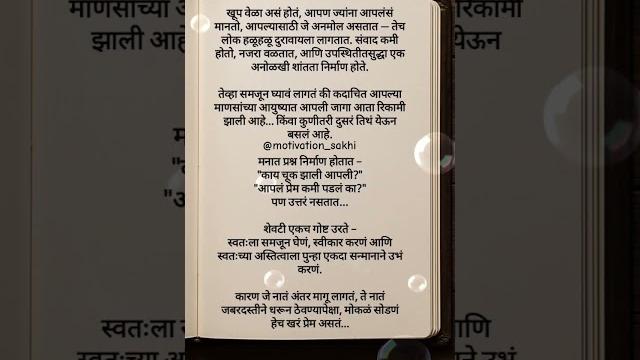 खूप वेळा असं होतं, आपण ज्यांना आपलंसं
मानतो, आपल्यासाठी जे अनमोल असतात — तेच
लोक हळूहळू दुरावायला लागतात. संवाद कमी
होतो, नजरा वळतात, आणि उपस्थितीतसुद्धा एक
अनोळखी शांतता निर्माण होते.
तेव्हा समजून घ्यावं लागतं की कदाचित आपल्या
माणसांच्या आयुष्यात आपली जागा आता रिकामी
झाली आहे... किंवा कुणीतरी दुसरं तिथं येऊन
बसलं आहे.
@motivation_sakhi
मनात प्रश्न निर्माण होतात –
"काय चूक झाली आपली?"
"आपलं प्रेम कमी पडलं का?"
पण उत्तरं नसतात...
शेवटी एकच गोष्ट उरते –
स्वतःला समजून घेणं, स्वीकार करणं आणि
स्वतःच्या अस्तित्वाला पुन्हा एकदा सन्मानाने उभं
करणं.
कारण जे नातं अंतर मागू लागतं, ते नातं
जबरदस्तीने धरून ठेवण्यापेक्षा, मोकळं सोडणं
हेच खरं प्रेम असतं...